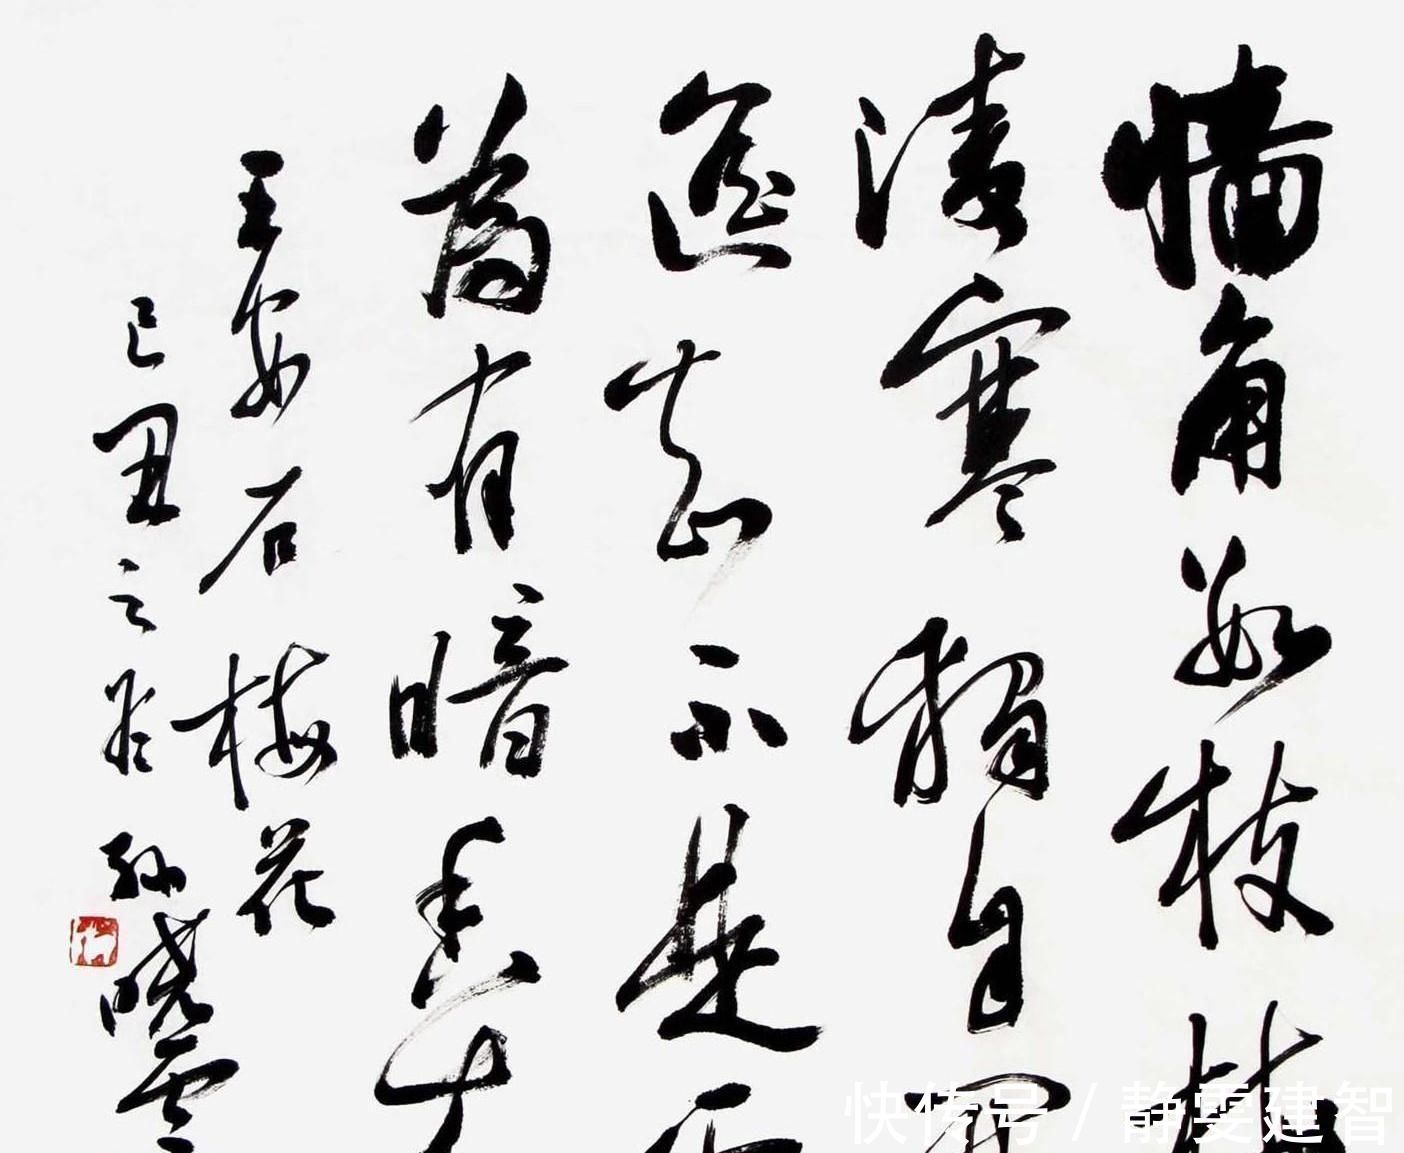 墙角数枝梅
凌寒独自开
遥知不是雪
为有暗香来
王安石梅花
己丑之冬孙晓云
快传号 / 静雯建智